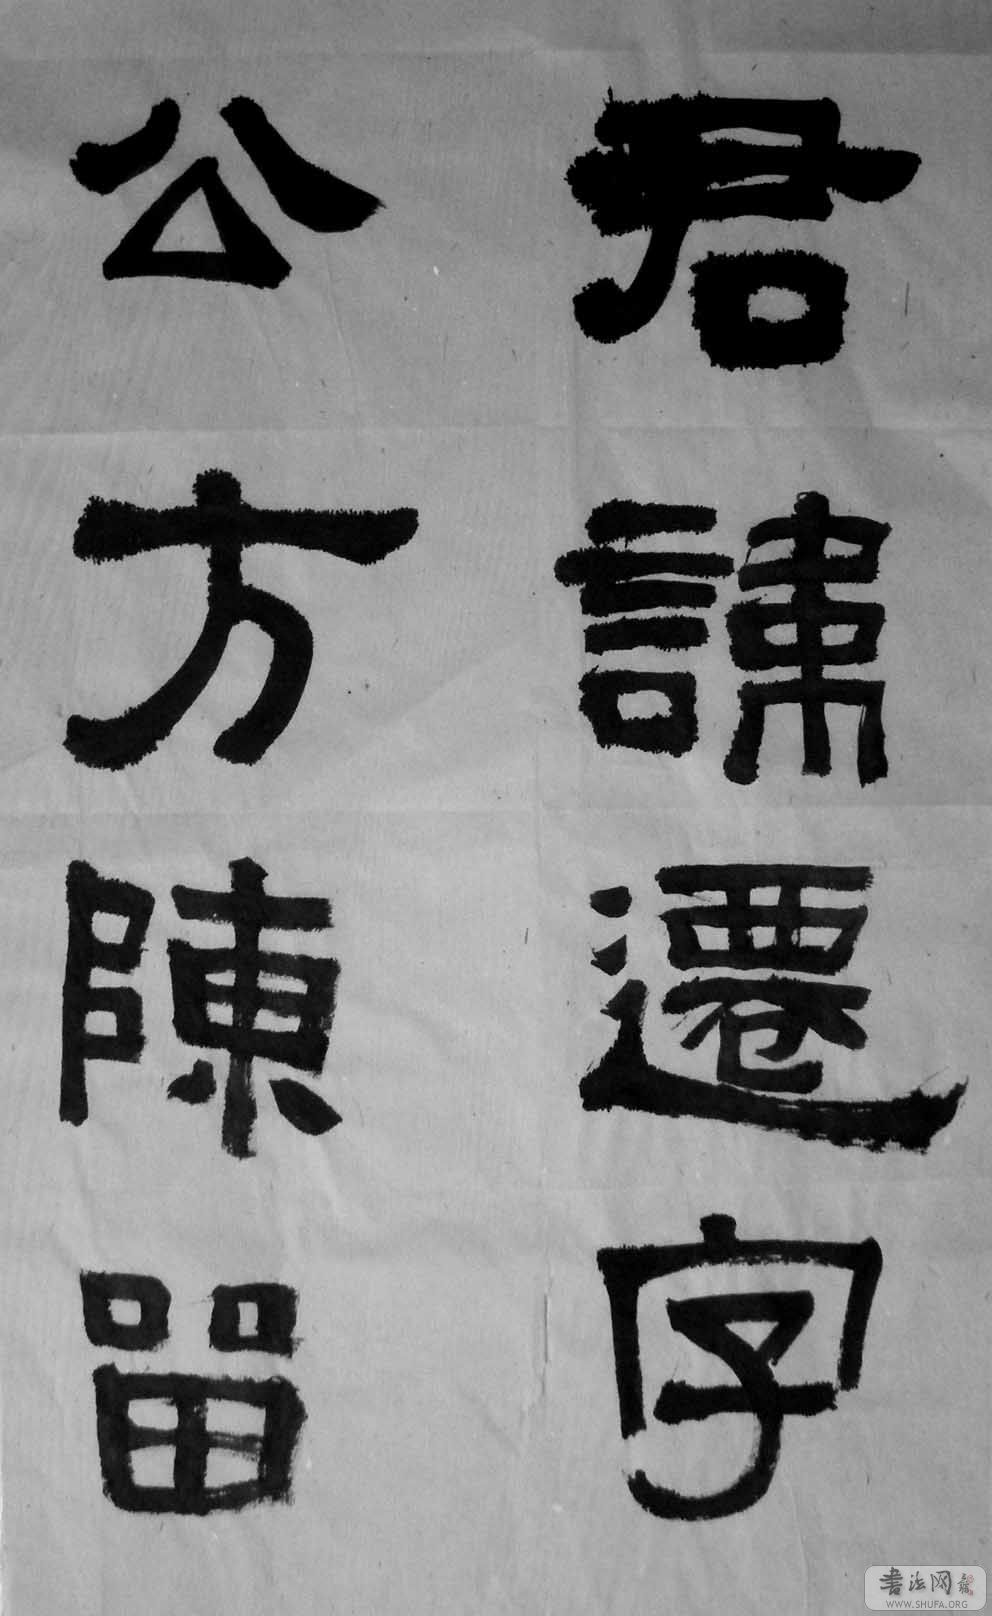 君諱遷字
公方陳留
書法网
WWW.SHUFA.ORG